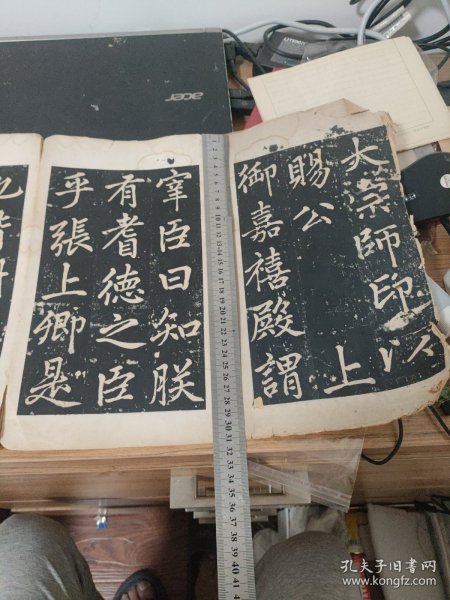 大宗師印以
賜公 上
御嘉禧殿謂
宰臣曰知朕
有耆德之臣
乎張上卿是
acer
孔夫子旧书网
www.kongfz.com